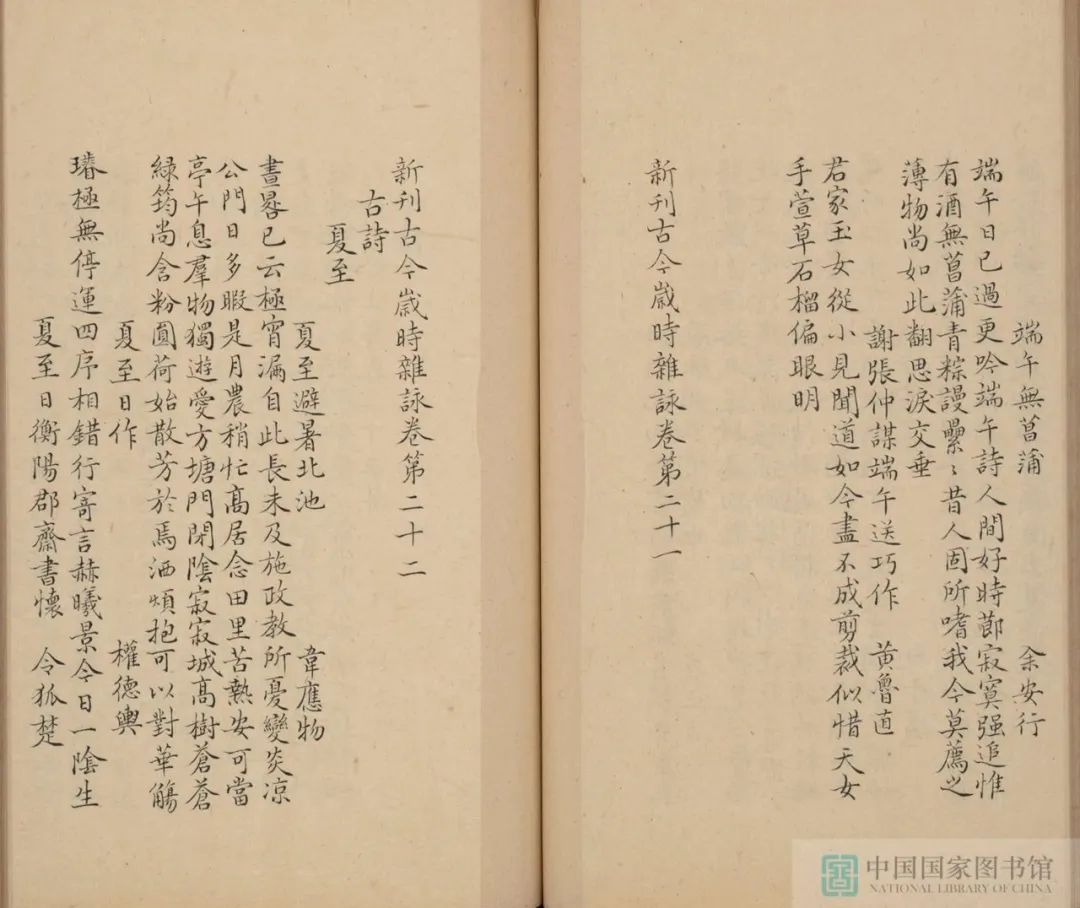 端午無菖蒲　余安行
端午日已過更吟端午詩人間好時節寂寞强追惟
有酒無菖蒲青粽謾纍〻昔人固所嗜我今莫薦之
薄物尚如此翻思淚交垂
謝張仲謀端午送巧作　黄魯直
君家玉女從小見聞道如今畫不成剪裁似惜天女
手萱草石榴偏眼明
新刊古今歲時雜詠卷第二十一
新刊古今歲時雜詠卷第二十二
古詩
夏至
夏至避暑北池　韋應物
晝晷已云極宵漏自此長未及施政教所憂變炎凉
公門日多暇是月農稍忙高居念田里苦熱安可當
亭午息羣物獨遊愛方塘門閉陰寂寂城高樹蒼蒼
緑筠尚含粉圓荷始散芳於焉洒煩抱可以對華觴
夏至日作　權德輿
璿極無停運四序相錯行寄言赫曦景今日一陰生
夏至日衡陽郡齋書懷　令狐楚
中国国家图书馆
NATIONAL LIBRARY OF CHINA